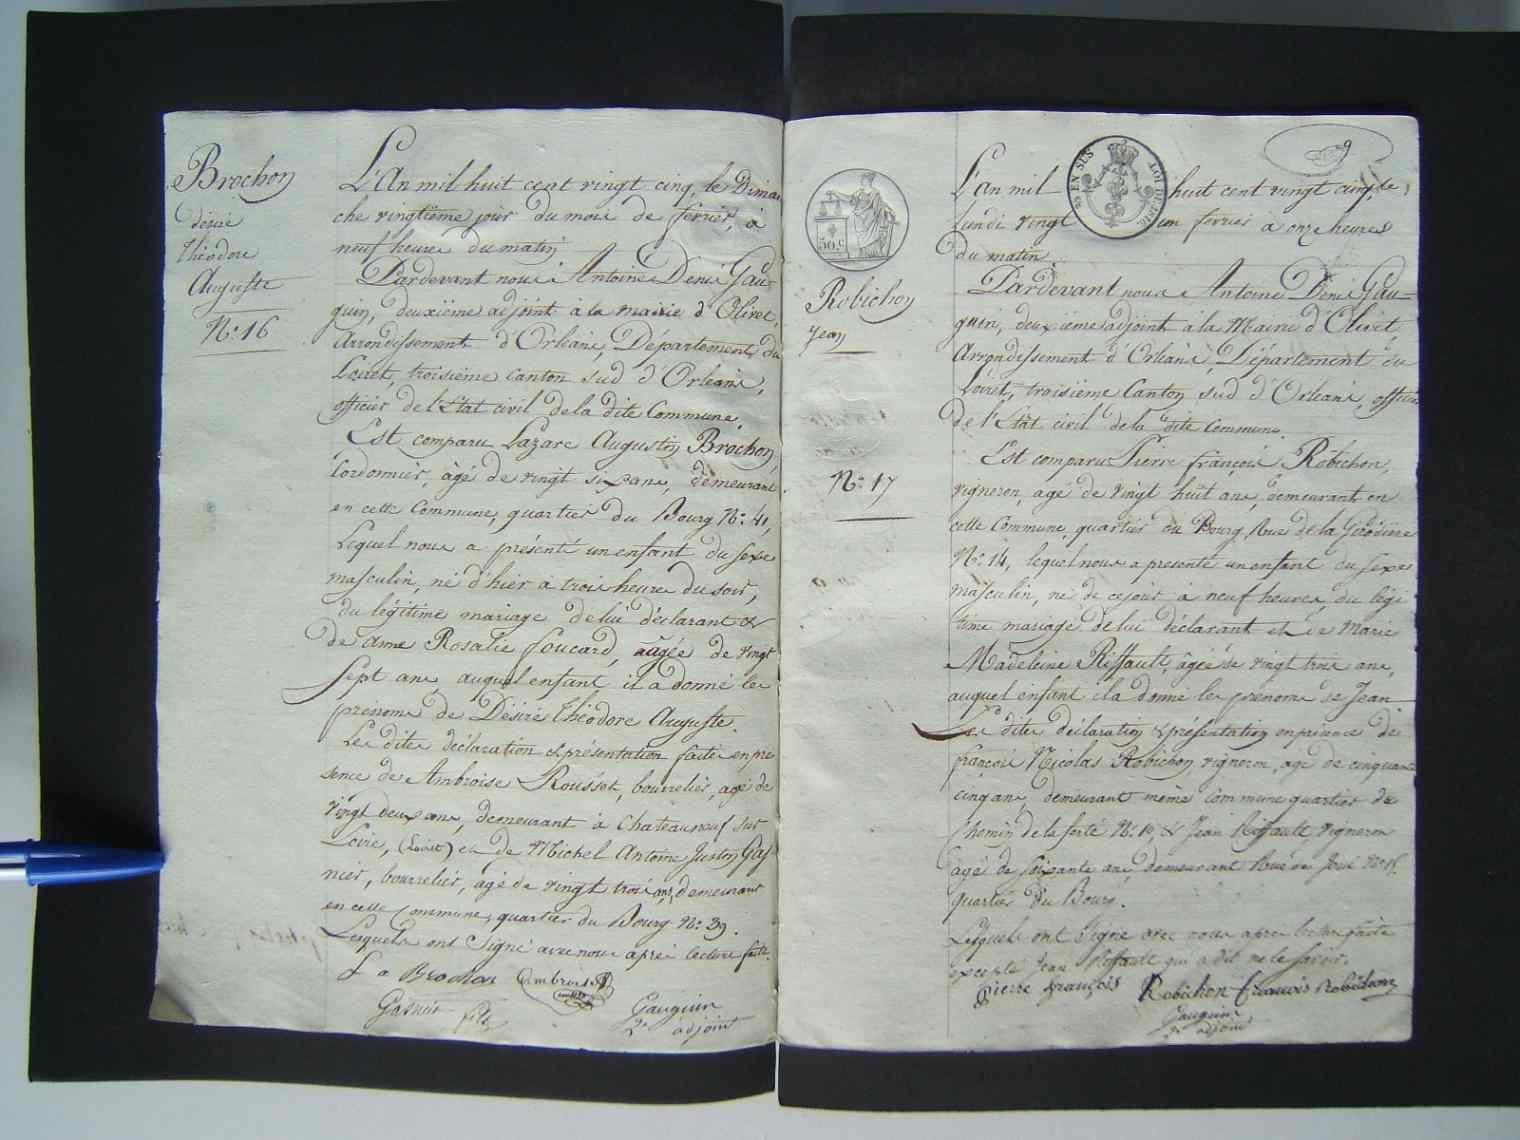 Brochon
désiré
théodore
Auguste
N°. 16
L'An mil huit cent vingt cinq, le Diman
che vingtième jour du mois de février, à
neuf heures du matin
Pardevant nous Antoine Denis Gau
guin, deuxième adjoint à la mairie d'Olivet,
Arrondissement d'Orléans, Département du
Loiret, troisième canton sud d'Orléans,
officier de l'Etat civil de la dite Commune.
Est comparu Lazare Augustin Brochon,
Cordonnier, âgé de vingt six ans, demeurant
en cette Commune, quartier du Bourg N°. 41,
Lequel nous a présenté un enfant du sexe
masculin, né d'hier à trois heures du soir,
du légitime mariage de lui déclarant &
de Anne Rosalie Foucard, âgée de vingt
Sept ans auquel enfant il a donné les
prénoms de Désiré théodore Auguste.
Les dites déclaration et présentation faites en pré
sence de Ambroise Rousset, bourrelier, agé de
vingt deux ans, demeurant à Chateauneuf sur
Loire, (Loiret) et de Michel Antoine Juston Gas
nier, bourrelier, agé de vingt trois ans, demeurant
en cette Commune, quartier du Bourg N°. 39.
Lesquels ont Signé avec nous après lecture faite.
L a Brochon Ambroise
Gasnier fils Gauguin
2e adjoint
50.C
Robichon
Jean
N°. 17
EN SUS
9
L'an mil huit cent vingt cinq, le
Lundi vingt un février à onze heures
du matin
Pardevant nous Antoine Denis Gau
guin, deuxième adjoint à la Mairie d'Olivet
Arrondissement d'Orléans, Département du
Loiret, troisième Canton sud d'Orléans, officier
de l'Etat civil de la dite Commune.
Est comparu Pierre françois Robichon,
vigneron, agé de vingt huit ans, demeurant en
cette Commune, quartier du Bourg, Rue de la
N°. 14, lequel nous a présenté un enfant du sexe
masculin, né de ce jour à neuf heures, du légi
time mariage de lui déclarant et de Marie
Madeleine Riffault, âgée de vingt trois ans,
auquel enfant il a donné les prénoms de Jean
Les dites déclaration & présentation en présence de
françois Nicolas Robichon vigneron, agé de cinquante
cinq ans, demeurant même Commune quartier du
Chemin de la ferté N°. 10, & Jean Riffault, vigneron
agé de soixante ans, demeurant Rue de
quartier du Bourg.
Lesquels ont Signé avec nous après lecture faite
excepté Jean Riffault qui a dit ne le savoir.
Pierre françois Robichon françois Robichon
Gauguin
2e adjoint